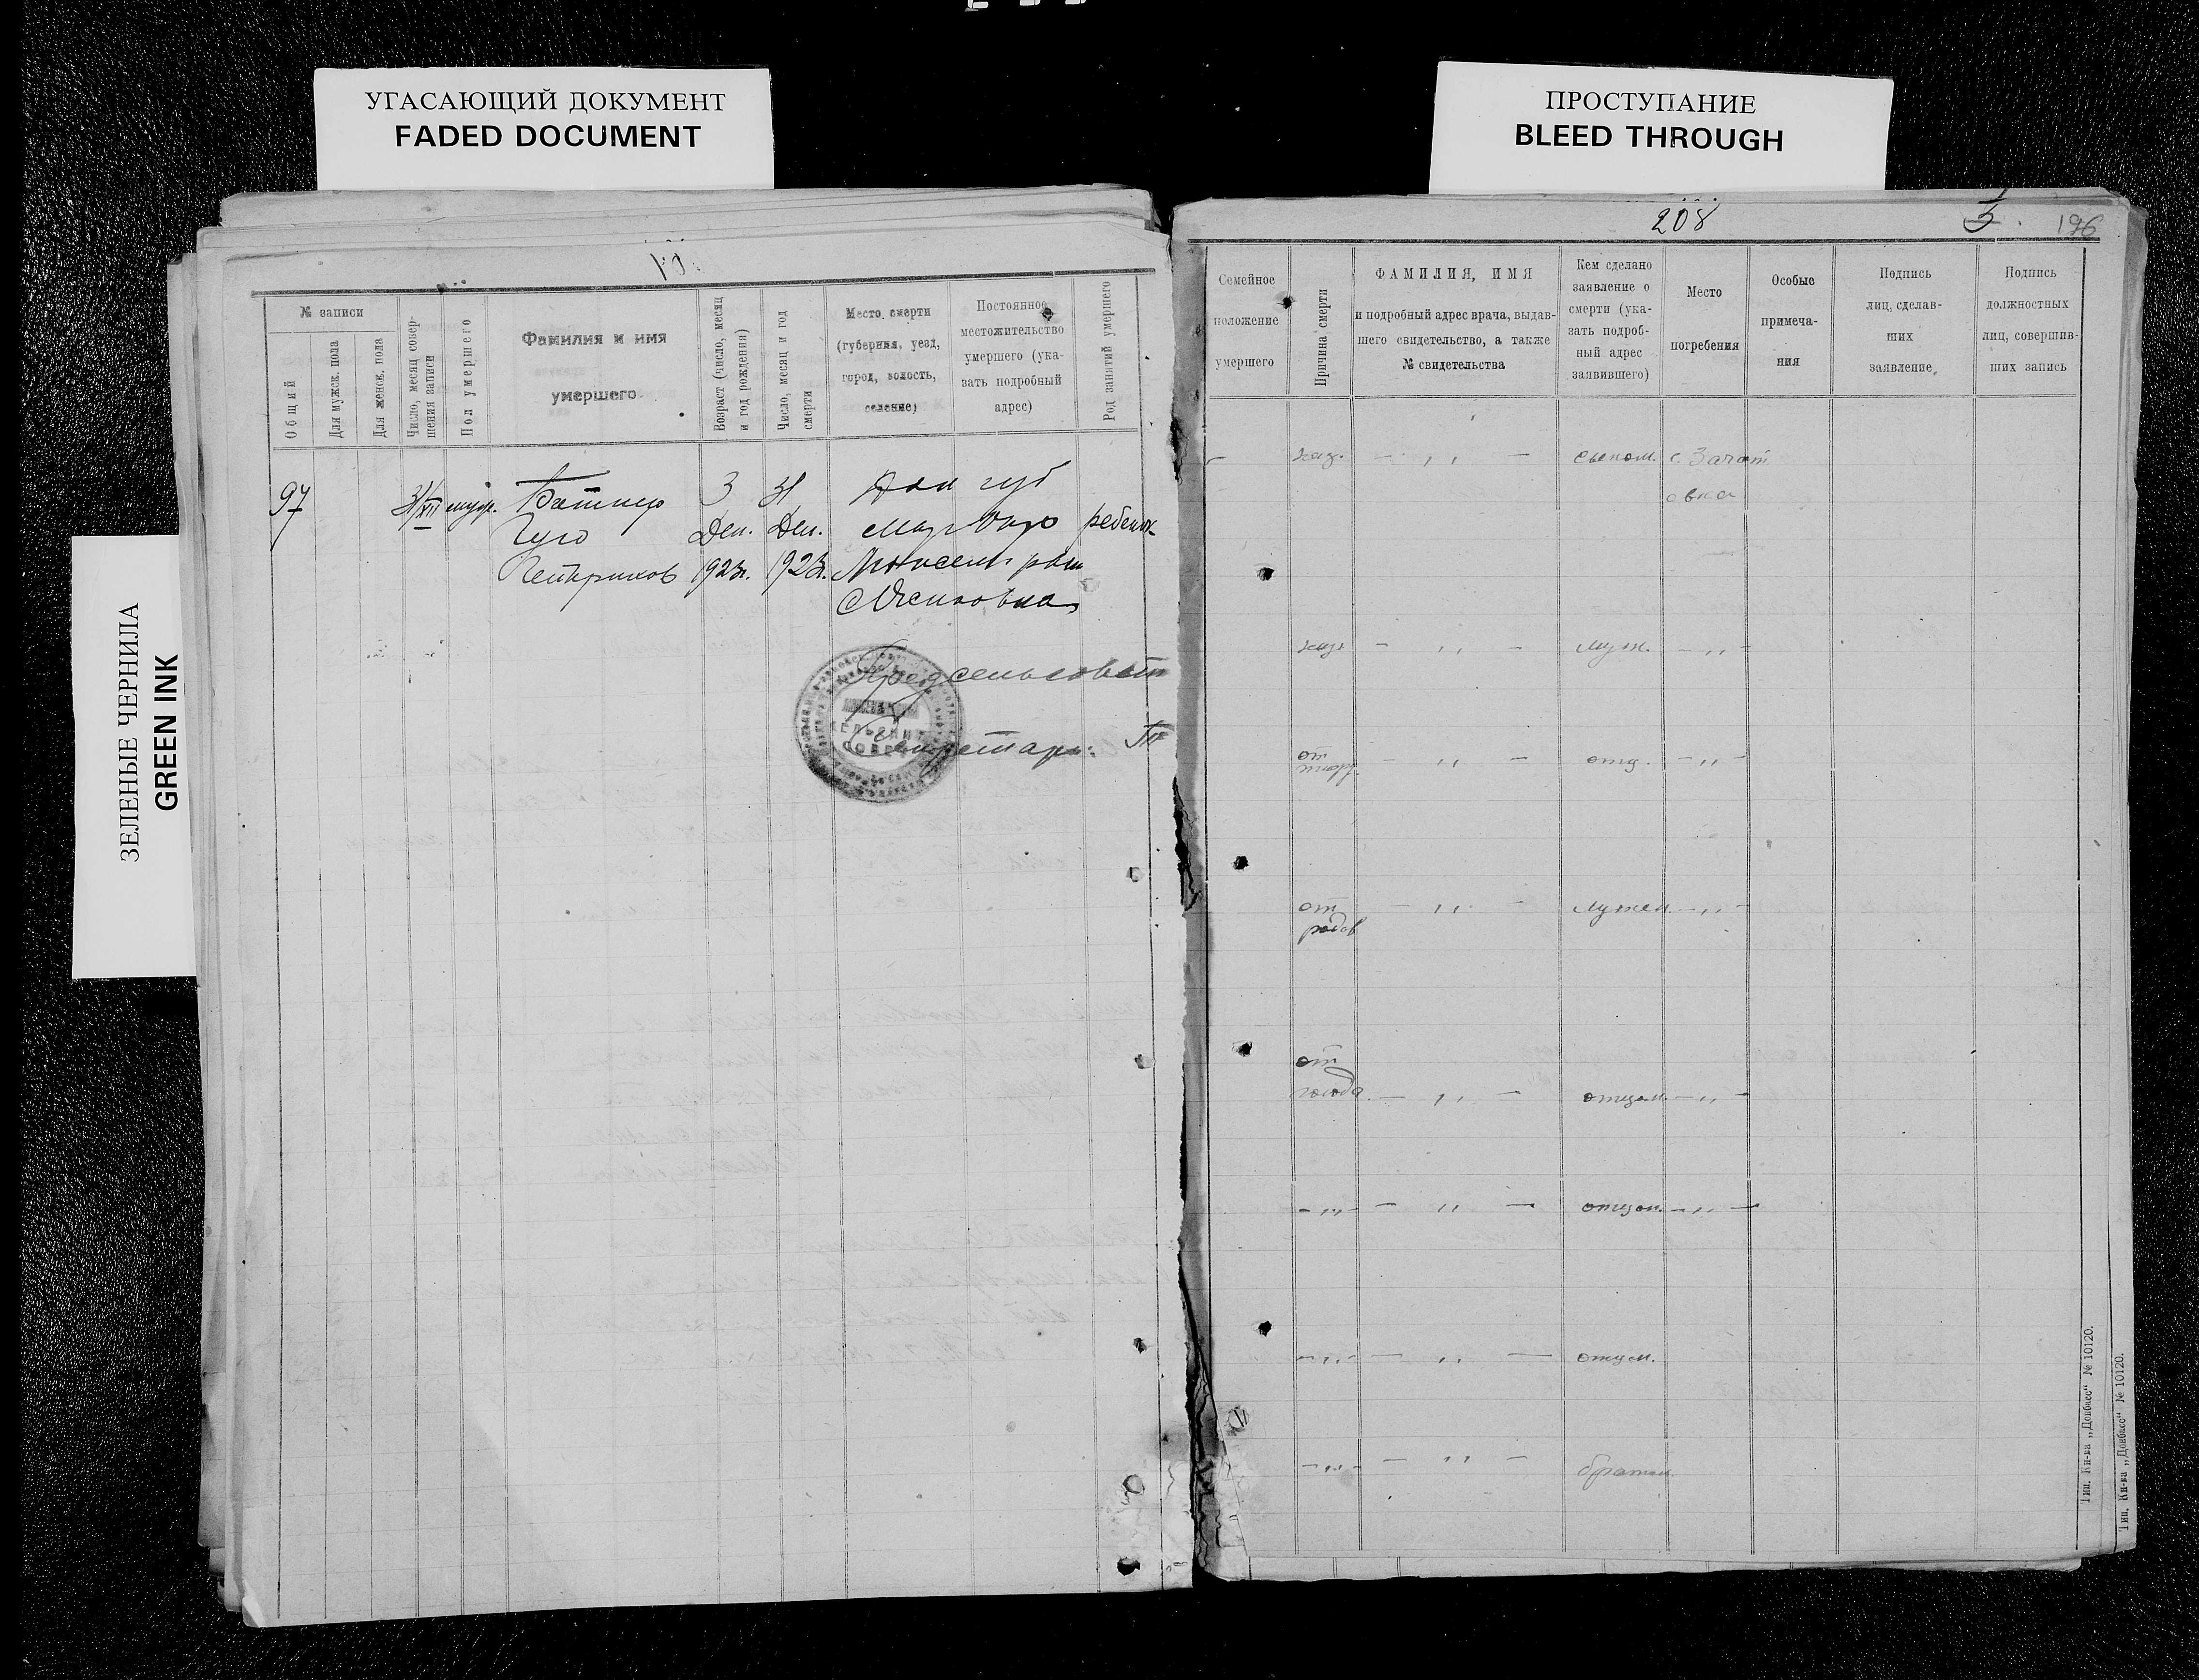 УГАСАЮЩИЙ ДОКУМЕНТ
FADED DOCUMENT
ПРОСТУПАНИЕ
BLEED THROUGH
ЗЕЛЕНЫЕ ЧЕРНИЛА
GREEN INK
№ записи
Общий
Для мужск. пола
Для женск. пола
Число, месяц совер-
шения записи
Пол умершего
Фамилия и имя
умершего
Возраст (число, месяц
и год рождения)
Число, месяц и год
смерти
Место смерти
(губерния, уезд,
город, волость,
селение)
Постоянное
местожительство
умершего (ука-
зать подробный
адрес)
Род занятий умершего
97
31/XII
3
31
Дон губ
Гуго
Дек.
Дек.
ребенок
1923г.
1923г.
Предсельсовета
Секретарь:
208
5.
196
Семейное
положение
умершего
Причина смерти
ФАМИЛИЯ, ИМЯ
и подробный адрес врача, выдав-
шего свидетельство, а также
№ свидетельства
Кем сделано
заявление о
смерти (ука-
зать подроб-
ный адрес
заявившего)
Место
погребения
Особые
примеча-
ния
Подпись
лиц, сделав-
ших
заявление.
Подпись
должностных
лиц, совершив-
ших запись
— ,, —
сыном.
с. Зачат
овка
— ,, —
муж.
— ,, —
от
— ,, —
отц.
— ,, —
от
родов
— ,, —
мужем.
— ,, —
от
голода.
— ,, —
отцом.
— ,, —
— ,, —
— ,, —
отцом.
— ,, —
— ,, —
— ,, —
отцом.
— ,, —
— ,, —
братом
Тип. Кн-ва „Донбасс“ № 10120.
Тип. Кн-ва „Донбасс“ № 10120.